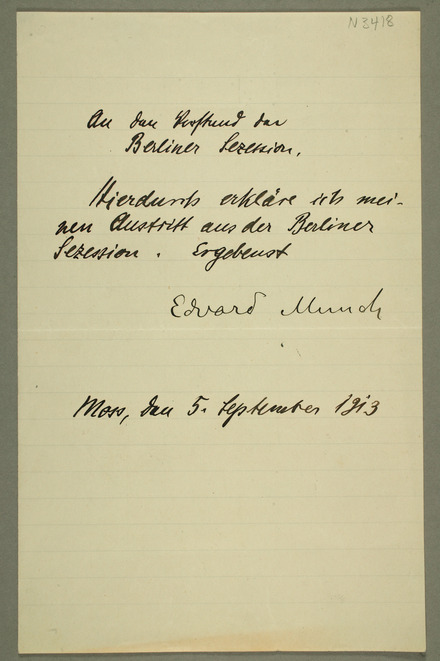 N 3418
An den Vorstand der
Berliner Sezession.
Hierdurch erkläre ich mei-
nen Austritt aus der Berliner
Sezession. Ergebenst
Edvard Munch
Moss, den 5. September 1913